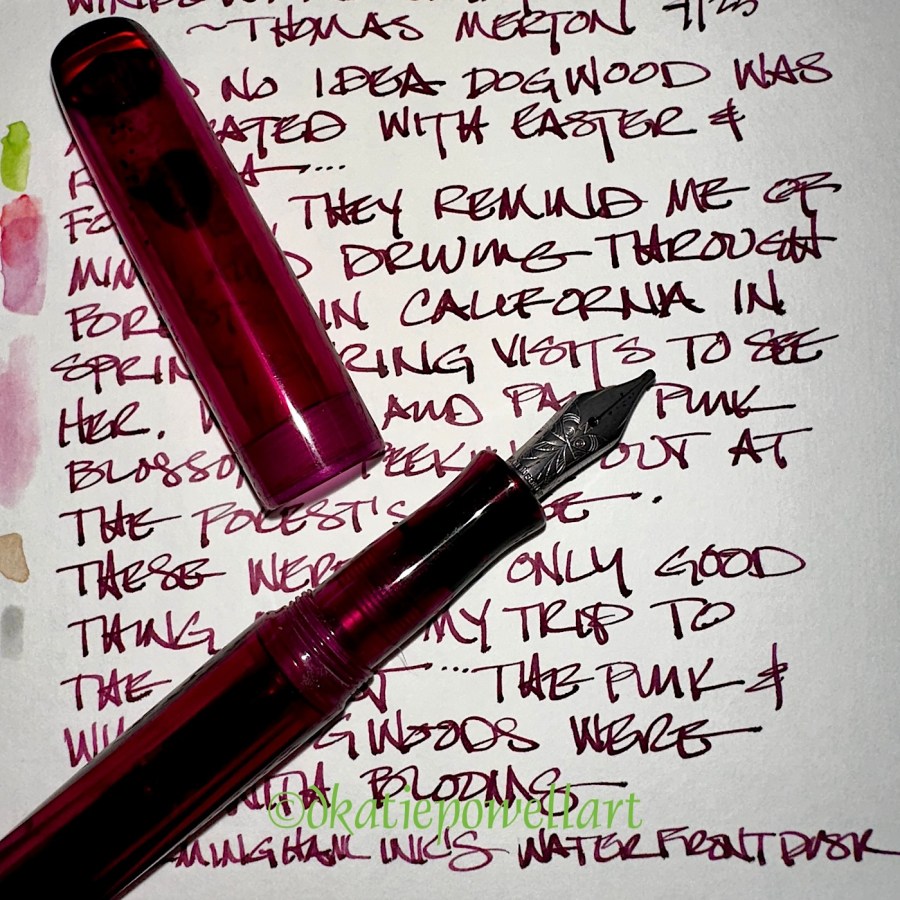 ~THOMAS MERTON 7/23
NO IDEA DOGWOOD WAS
ATED WITH EASTER &
THEY REMIND ME OF
DRIVING THROUGH
IN CALIFORNIA IN
SPRIN RING VISITS TO SEE
HER. AND PA PINK
BLOSSO PEEKIN OUT AT
THE FOREST'S
THESE WERE ONLY GOOD
THING MY TRIP TO
THE ... THE PINK &
GWOODS WERE
WITH BLOOMS
©dkatiepowellart
MINGHAM INKS WATERFRONT DUSK